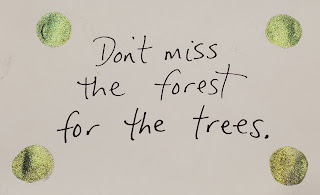 Don't miss
the forest
for the trees.